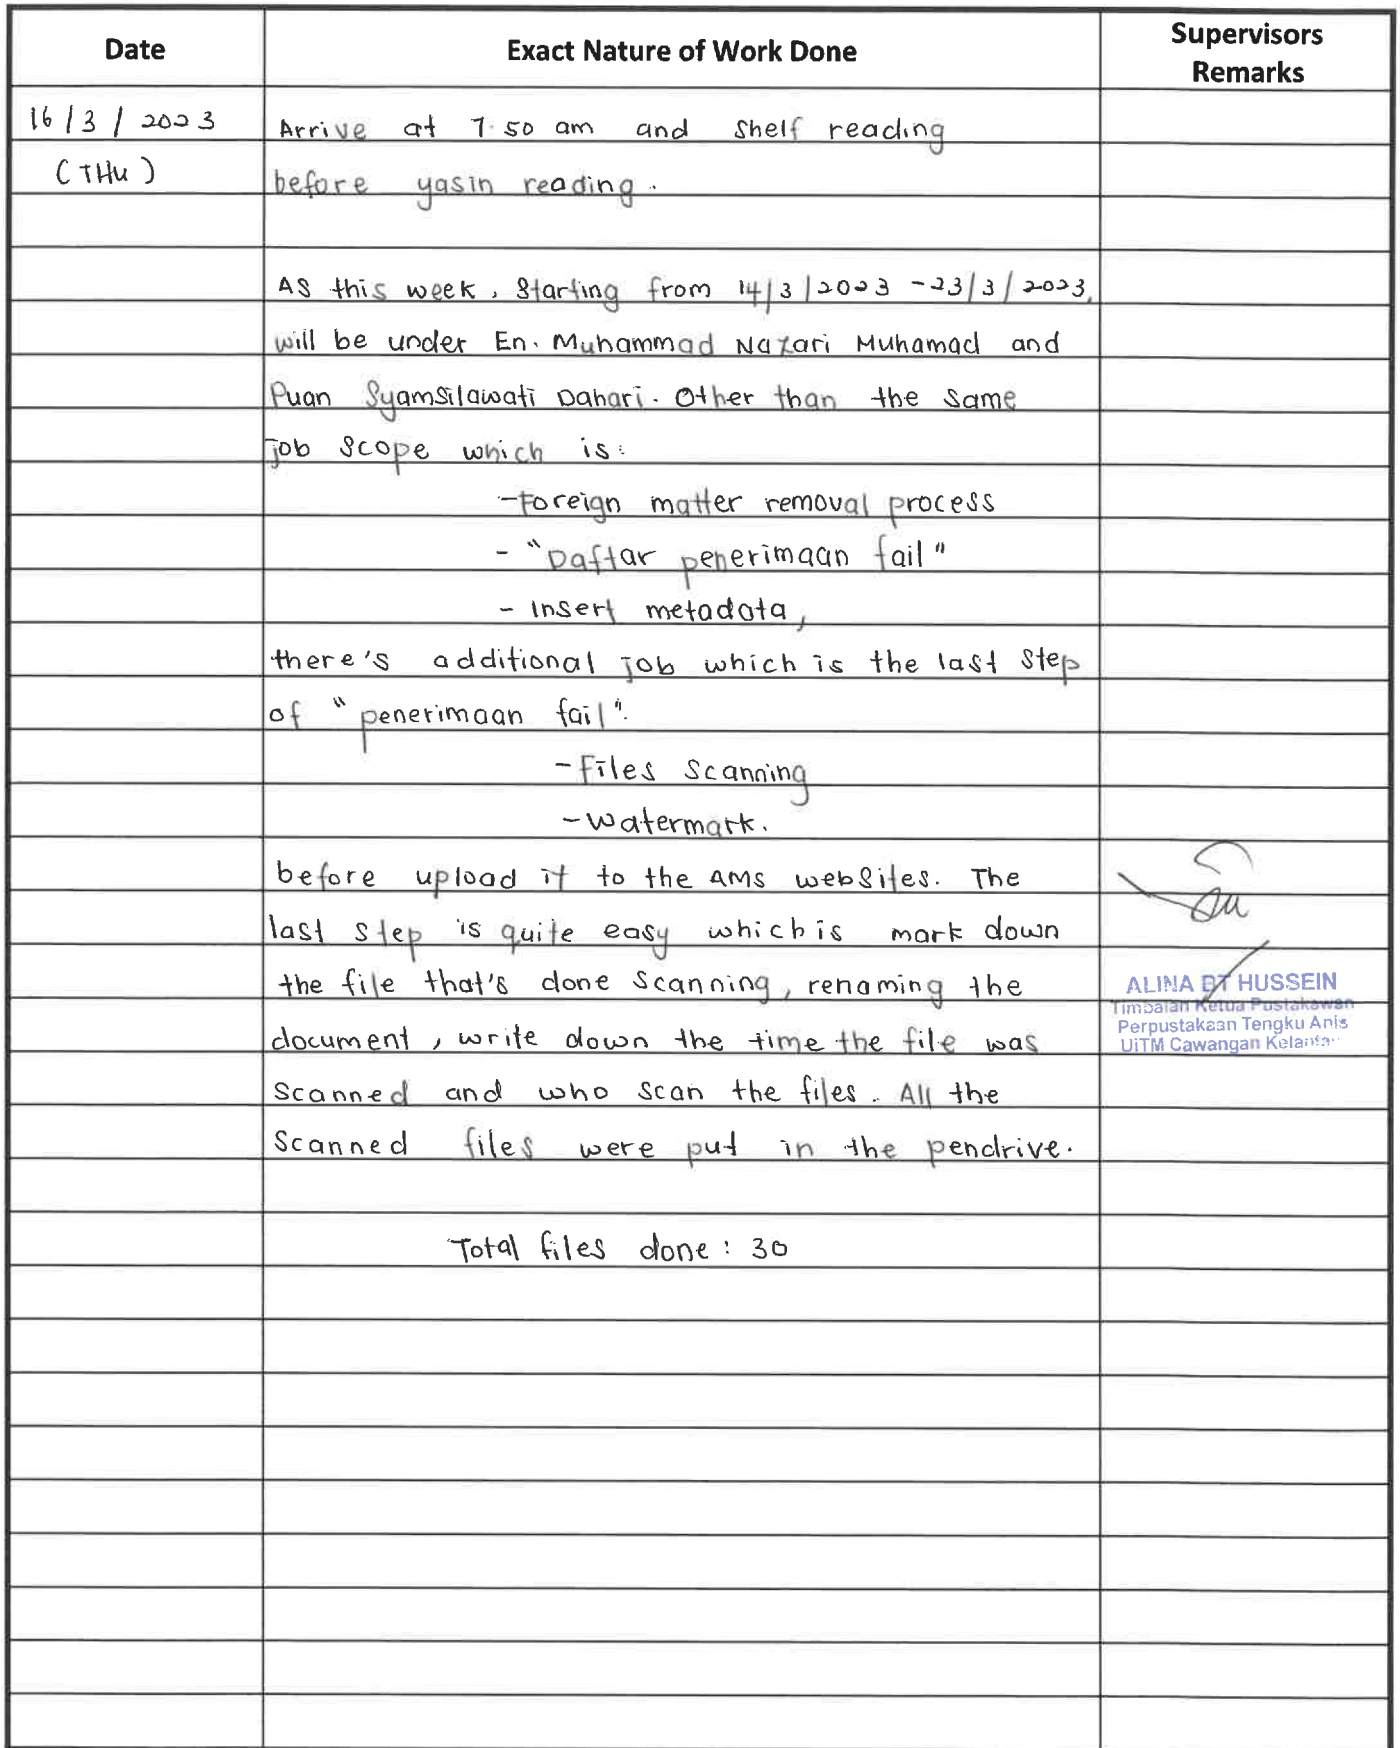 Date
Exact Nature of Work Done
Supervisors
Remarks
16/3/2023
(THU)
Arrive at 7.50 am and shelf reading
before yasin reading.
As this week, starting from 14/3/2023 - 23/3/2023,
will be under En. Muhammad Nazari Muhamad and
Puan Syamsilawati Dahari. Other than the same
job scope which is:
- Foreign matter removal process
- "Daftar penerimaan fail"
- Insert metadata,
there's additional job which is the last step
of "penerimaan fail".
- Files scanning
- Watermark.
before upload it to the AMS websites. The
last step is quite easy which is mark down
the file that's done scanning, renaming the
document, write down the time the file was
scanned and who scan the files. All the
scanned files were put in the pendrive.
Total files done : 30
ALINA BT HUSSEIN
Timbalan Ketua Pustakawan
Perpustakaan Tengku Anis
UiTM Cawangan Kelantan